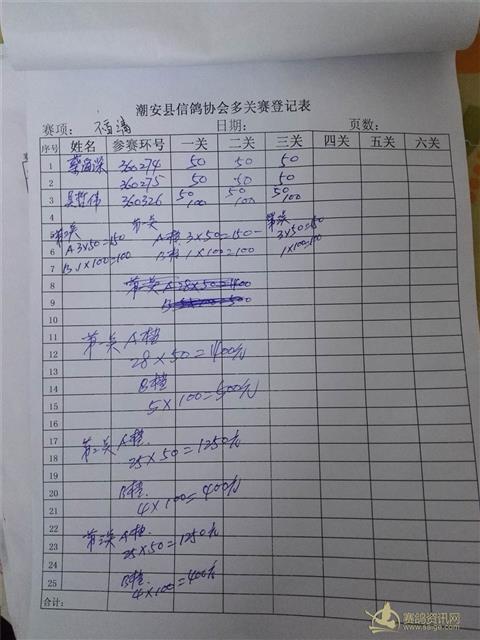 潮安县信鸽协会多关赛登记表
赛项： 日期： 页数：
序号 姓名 参赛环号 一关 二关 三关 四关 五关 六关
1 360274 50 50 50
2 360275 50 50 50
3 360326 50 100 50 100 50 100
4
5 第二关 第一关 第三关
6 A 3×50=150 A档 3×50=150 3×50=150
7 B 1×100=100 B档 1×100=100 1×100=100
8 第一关 A 28×50=1400
9
10
11 第一关 A档
12 28×50=1400元
13
14 B档
15 5×100=500元
16
17 第二关 A档.
18 25×50=1250元
19
20 B档.
21 4×100=400元
22
23 第三关 A档.
24 25×50=1250元
25 B档.
4×100=400元
合计：
赛鸽资讯网
www.saige.com